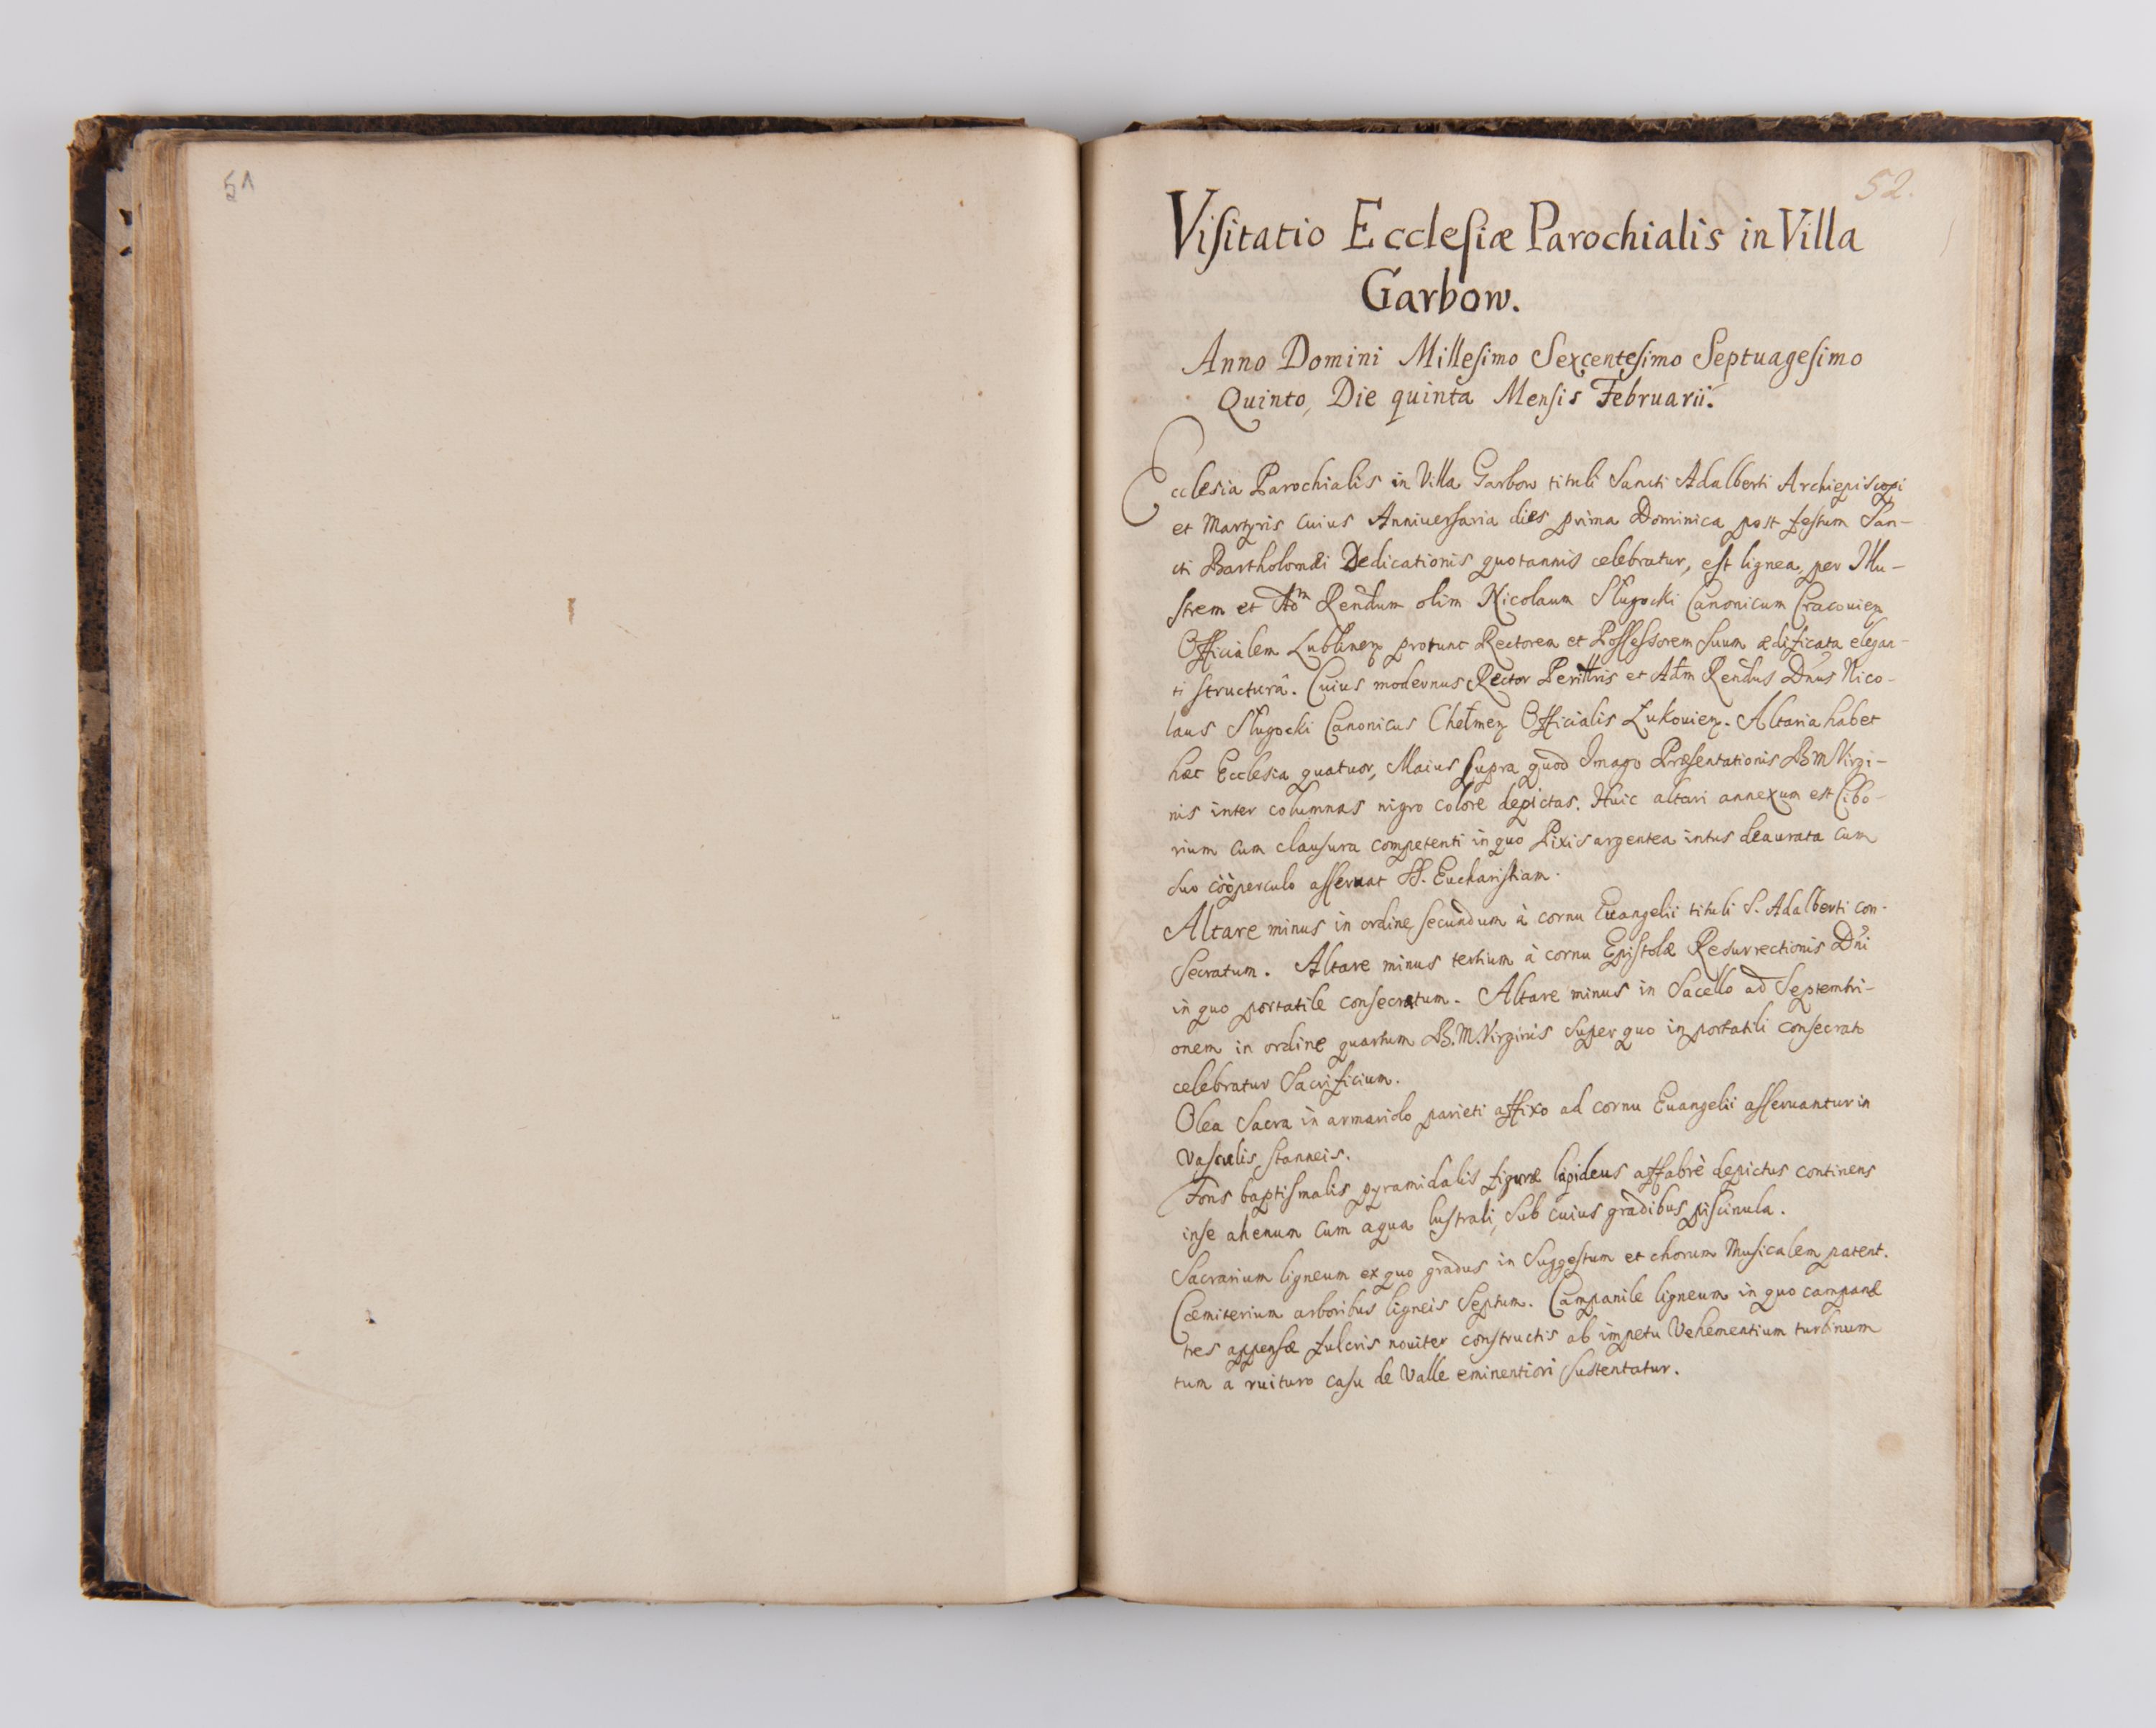 51
52.
Visitatio Ecclesiæ Parochialis in Villa
Garbow.
Anno Domini Millesimo Sexcentesimo Septuagesimo
Quinto, Die quinta Mensis Februarii.
Ecclesia Parochialis in Villa Garbow tituli Sancti Adalberti Archiepiscopi
et Martyris cuius Anniuersaria dies prima Dominica post festum San-
cti Bartholomæi Dedicationis quotannis celebratur, est lignea, per Illu-
strem et Adm Rendum olim Nicolaum Sługocki Canonicum Cracouien
Officialem Lublinen protunc Rectorem et Possessorem suum ædificata elegan-
ti structurâ. Cuius modernus Rector Perilltris et Adm Rendus Dnus Nico-
laus Sługocki Canonicus Chełmen Officialis Lukouien. Altaria habet
hæc Ecclesia quatuor, Maius supra quod Imago Præsentationis B M Virgi-
nis inter columnas nigro colore depictas. Huic altari annexum est Cibo-
rium cum clausura competenti in quo Pixis argentea intus deaurata cum
suo cooperculo asseruat SS. Eucharistiam.
Altare minus in ordine secundum à cornu Euangelii tituli S. Adalberti con-
secratum. Altare minus tertium à cornu Epistolæ Resurrectionis Dni
in quo portatile consecratum. Altare minus in Sacello ad Septemtri-
onem in ordine quartum B. M. Virginis super quo in portatili consecrato
celebratur Sacrificium.
Olea Sacra in armariolo parieti affixo ad cornu Euangelii asseruantur in
vasculis stanneis.
Fons baptismalis pyramidalis figuræ lapideus affabrè depictus continens
inse ahenum cum aqua lustrali, sub cuius gradibus piscinula.
Sacrarium ligneum ex quo gradus in Suggestum et chorum Musicalem patent.
Cæmiterium arboribus ligneis Septum. Campanile ligneum in quo campanæ
tres appensæ fulcris nouiter constructis ab impetu vehementium turbinum
tum a ruituro casu de Valle eminentiori sustentatur.